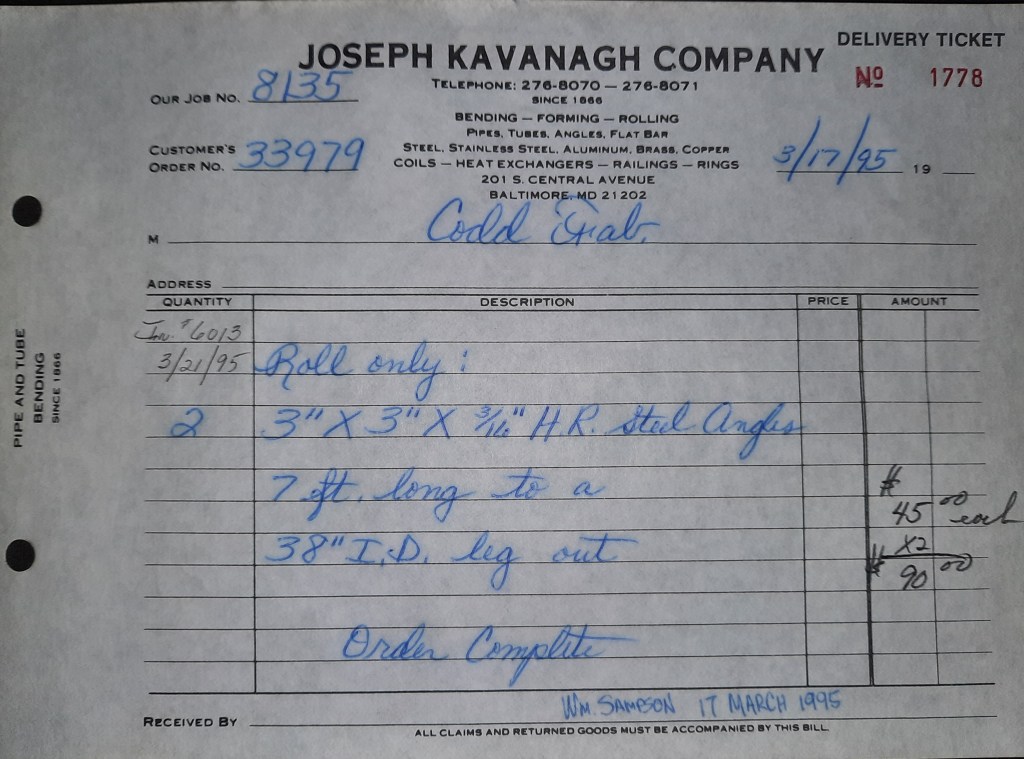 DELIVERY TICKET
JOSEPH KAVANAGH COMPANY
Nº 1778
OUR JOB NO. 8135
TELEPHONE: 276-8070 — 276-8071
SINCE 1866
BENDING — FORMING — ROLLING
PIPES, TUBES, ANGLES, FLAT BAR
CUSTOMER'S
ORDER NO. 33979
STEEL, STAINLESS STEEL, ALUMINUM, BRASS, COPPER
COILS — HEAT EXCHANGERS — RAILINGS — RINGS
3/17/95 19
201 S. CENTRAL AVENUE
BALTIMORE, MD 21202
M Codd Fab.
ADDRESS
QUANTITY DESCRIPTION PRICE AMOUNT
Inv. #6013
3/21/95 Roll only:
2 3" X 3" X 3/16" H.R. Steel Angles
7 ft. long to a
$45 00 each
38" I.D. leg out
X2
$90 00
Order Complete
Wm. SAMPSON 17 MARCH 1995
RECEIVED BY
ALL CLAIMS AND RETURNED GOODS MUST BE ACCOMPANIED BY THIS BILL
PIPE AND TUBE
BENDING
SINCE 1866